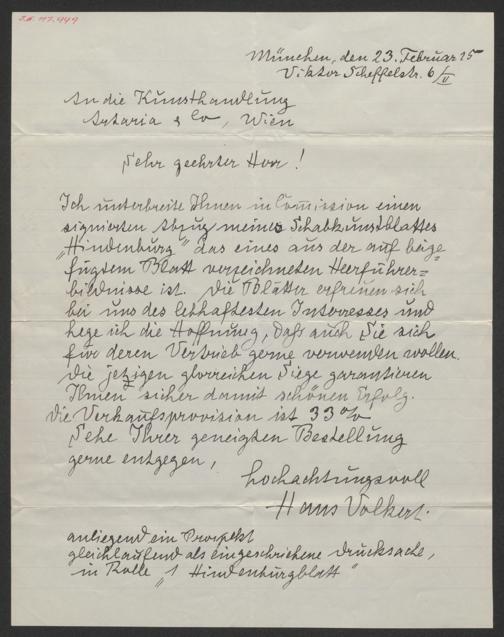 I.N. 117.949
München, den 23. Februar 15
Viktor Scheffelstr. 6/II
An die Kunsthandlung
Artaria & Co, Wien
Sehr geehrter Herr!
Ich unterbreite Ihnen in Comission einen
signierten Abzug meines Schabkunstblattes
„Hindenburg" das eines aus der auf beige=
fügtem Blatt verzeichneten Heerführer=
bildnisse ist. Die Blätter erfreuen sich
bei uns des lebhaftesten Interesses und
hege ich die Hoffnung, daß auch Sie sich
für deren Vertrieb gerne verwenden wollen.
Die jetzigen glorreichen Siege garantieren
Ihnen sicher damit schönen Erfolg.
Die Verkaufsprovision ist 33%
Sehe Ihrer geneigten Bestellung
gerne entgegen,
hochachtungsvoll
Hans Volkert.
anliegend ein Prospekt
gleichlaufend als eingeschriebene Drucksache,
in Rolle „1 Hindenburgblatt"